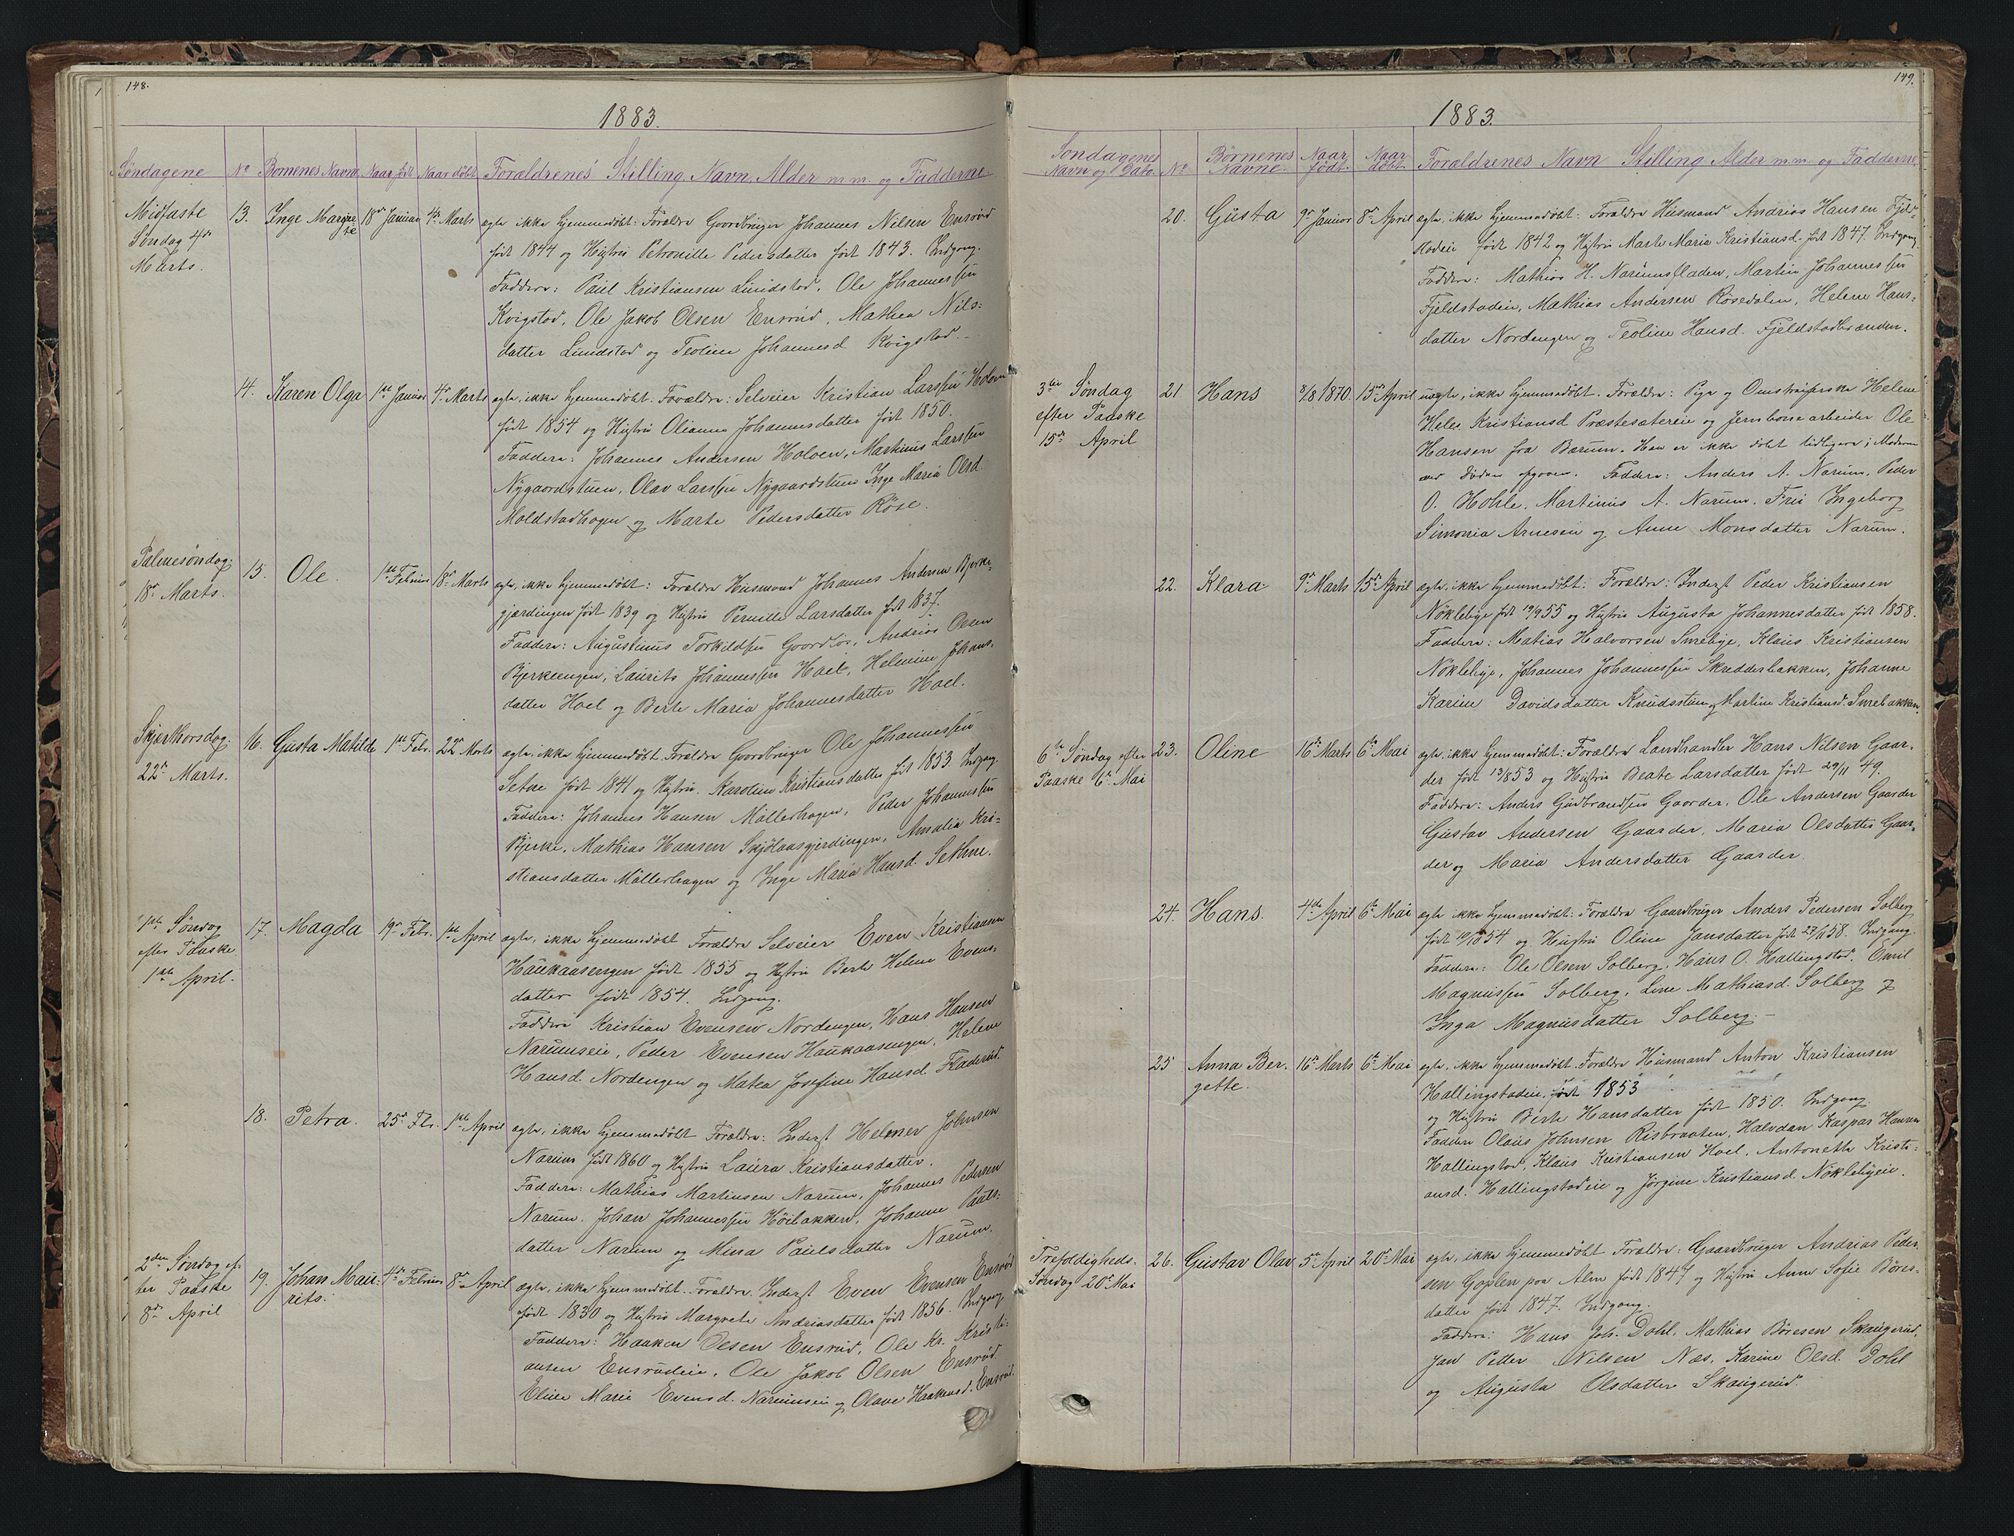 148.
1883.
Søndagene No Børnenes Navn Naar født Naar døbt Foraldrenes Stilling, Navn, Alder m.m. og Fadderne
Midfaste 13. Inge Margre- 18de Januar 4de Marts ægte ikke hjemmedøbt: Foraldre Gaardbruger Johannes Nilsen Ensrud
Søndag 4de te født 1844 og Hustru Petronille Pedersdatter født 1843. Indgang.
Marts. Faddere: Paul Kristiansen Lundstad, Ole Johannessen
Kvigstad, Ole Jakob Olsen Ensrud, Mathea Nils-
datter Lundstad og Teoline Johannesd Kvigstad.
14. Karen Olga 1ste Januar 4de Marts ægte, ikke hjemmedøbt. Foraldre: Selveier Kristian Larssen Holoen
født 1854 og Hustru Olianna Johannesdatter født 1850.
Faddere: Johannes Andersen Holoen, Martinus Larssen
Nygaardstuen, Olav Larssen Nygaardstuen Inge Maria Olsd.
Moldstadhagen og Marte Pedersdatter Røse.
Palmesøndag 15. Ole. 1ste Februar 18de Marts ægte, ikke hjemmedøbt: Foraldre Husmand Johannes Andersen Bjerke-
18de Marts. gjærdingen født 1839 og Hustru Pernille Larsdatter født 1837.
Faddere: Augustinus Torkildsen Gaardløs, Andrias Olsen
Bjerkeengen, Laurits Johannessen Hoel, Helmine Johans-
datter Hoel og Berte Maria Johannesdatter Hoel.
Skjærthorsdag 16. Gusta Matilde 1ste Febr. 22de Marts ægte, ikke hjemmedøbt. Foraldre Gaardbruger Ole Johannessen
22de Marts. Setne født 1841 og Hustru Karoline Kristiansdatter født 1853 Indgang.
Faddere: Johannes Hansen Møllerhagen, Peder Johannessen
Bjerke, Mathias Hansen Skjølaasgjerdingen, Amalia Kri-
stiansdatter Møllerhagen og Inge Maria Hansd. Sethne.
1ste Søndag 17. Magda 19de Febr. 1ste April ægte, ikke hjemmedøbt Foraldre Selveier Even Kristiansen
efter Paaske Haukaasengen født 1855 og Hustru Berte Helene Evens-
1ste April. datter født 1854. Indgang.
Faddere Kristian Evensen Nordengen, Hans Hansen
Narumseie, Peder Evensen Haukaasengen, Helene
Hansd. Nordengen og Matea Josefine Hansd. Fladerud.
18. Petra. 25de Fbr. 1ste April ægte, ikke hjemmedøbt Foraldre: Inderst Helmer Johnsen
Narum født 1860 og Hustru Laura Kristiansdatter.
Faddere: Mathias Martinsen Narum, Johannes Pedersen
Narum. Johan Johannessen Høibakken, Johanne Pauls-
datter Narum og Mina Paulsdatter Narum.
2den Søndag ef- 19. Johan Mau- 4de Februar 8de April ægte, ikke hjemmedøbt. Foraldre. Inderst Even Evensen Ensrud
ter Paaske rits. født 1830 og Hustru Margrete Andriasdatter født 1856. Indgang
8de April Faddere: Haaken Olsen Ensrud, Ole Kr. Kristi-
ansen Ensrudeie, Ole Jakob Olsen Ensrud.
Eline Marie Evensd. Narumseie og Olave Haakensd. Ensrud.
149.
1883.
Søndagenes Navn og Dato. No Børnenes Navne. Naar født. Naar døbt Foraldrenes Navn Stilling Alder m.m. og Fadderne
20. Gusta 9de Januar 8de April ægte, ikke hjemmedøbt: Foraldre Husmand Andrias Hansen Fjeld-
stadeie født 1842 og Hustru Marte Maria Kristiansd. født 1847. Indgang
Faddere: Mathias H. Narumsfladen, Martin Johannessen
Fjeldstadeie, Mathias Andersen Rosedalen, Helene Hans-
datter Nordengen og Teoline Hansd. Fjeldstadbrænden.
3die Søndag 21 Hans 8/8 1870. 15de April uægte, ikke hjemmedøbt. Foraldre: Pige og Omstreiferske Helene
efter Paaske Hele. Kristiansd Præstesætereie og Jernbanearbeider Ole
15de April Hansen fra Bærum. Han er ikke døbt tidligere; Moderen
ved Døden afgaaen. Faddere: Anders A. Narum, Peder
O. Hohle, Martinus A. Narum. Fru Ingeborg
Simonia Arnesen og Anne Monsdatter Narum.
22. Klara 9de Marts 15de April ægte, ikke hjemmedøbt: Foraldre: Inderst Peder Kristiansen
Nøklebye født 19/9 55 og Hustru Augusta Johannesdatter født 1858.
Faddere: Matias Halvorsen Smebye, Klaus Kristiansen
Nøklebye, Johannes Johannessen Skredderbakken, Johanne
Karine Davidsdatter Knudsstuen og Martine Kristiansd Smebakken.
6te Søndag efter 23. Oline 16de Marts 6te Mai ægte, ikke hjemmedøbt: Foraldre Landhandler Hans Nilsen Gaar-
Paaske 6te Mai der født 13/ 853 og Hustru Beate Larsdatter født 29/11 49.
Faddere: Anders Gudbrandsen Gaarder, Ole Andersen Gaarder
Gustav Andersen Gaarder, Maria Olsdatter Gaar-
der og Maria Andersdatter Gaarder.
24. Hans. 4de April 6te Mai ægte ikke hjemmedøbt: Foraldre Gaardbruger Anders Pedersen Solberg
født 1854 og Hustru Oline Jansdatter født 58. Indgang.
Faddere: Ole Olsen Solberg, Hans O. Hallingstad, Emil
Magnussen Solberg, Line Mathiasd. Solberg og
Inga Magnusdatter Solberg.
25 Anna Ber- 16de Marts 6te Mai ægte, ikke hjemmedøbt. Foraldre Husmand Anton Kristiansen
gette. Hallingstadeie, født 1853
og Hustru Berte Hansdatter født 1850. Indgang.
Faddere Olaus Johnsen Risbraaten, Halvdan Kaspar Hansen
Hallingstad, Klaus Kristiansen Hoel, Antonette Kristi-
ansd. Hallingstadeie og Jørgine Kristiansd. Nøklebyeie.
Trefoldigheds- 26. Gustav Olav 5te April 20de Mai ægte, ikke hjemmedøbt Foraldre: Gaardbruger Andrias Peder-
søndag 20de Mai sen Goplen paa Alm født 1847 og Hustru Anne Sofie Børes-
datter født 1847. Indgang.
Faddere: Hans Joh. Dahl, Mathias Børesen Skaugerud.
Jan Petter Nilsen Næs, Karine Olsd. Dahl
og Augusta Olsdatter Skaugerud.